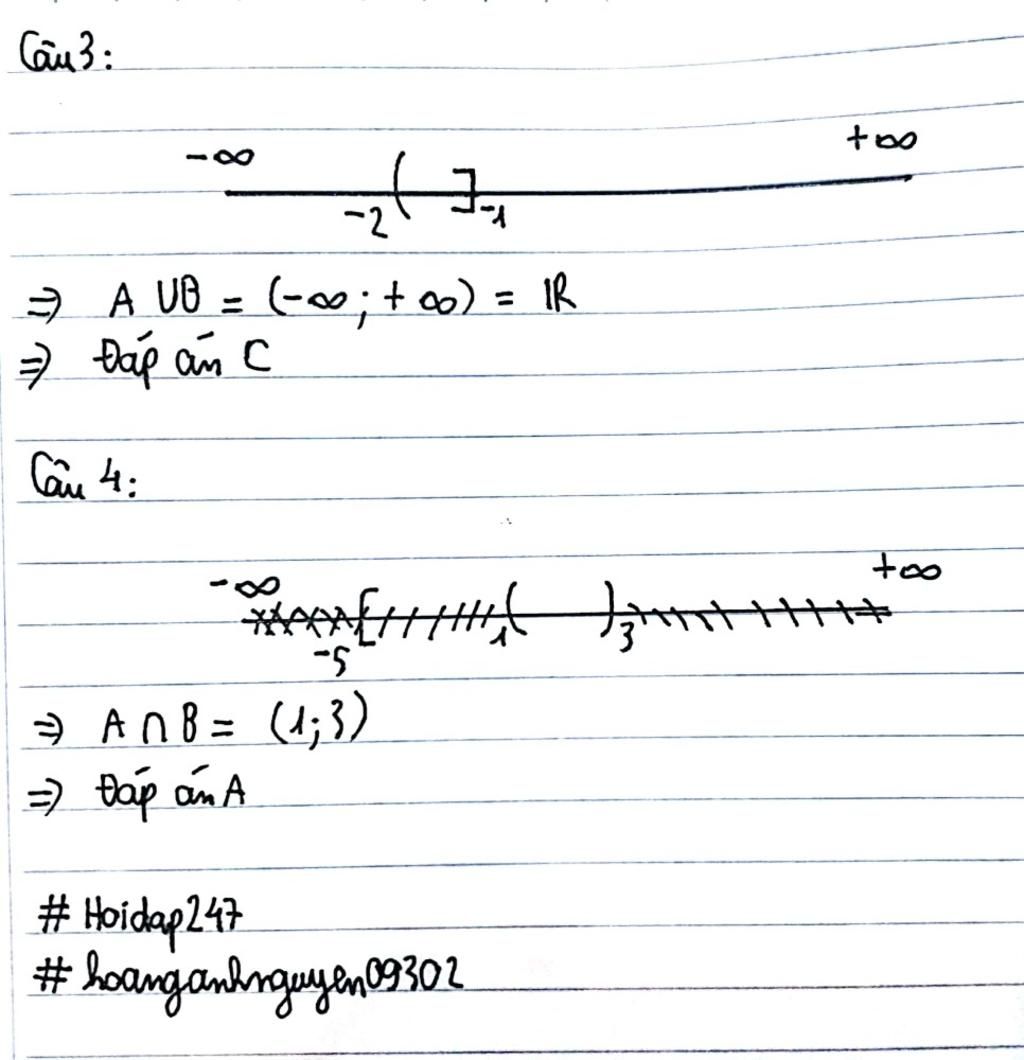 Câu 3:
-∞ +∞
-2 ( ] -1
⇒ A ∪ B = (-∞; +∞) = ℝ
⇒ Đáp án C
Câu 4:
-∞ +∞
-5 [ 1 ( ) 3
⇒ A ∩ B = (1; 3)
⇒ Đáp án A
# Hoidap247
# hoanganhnguyen09302